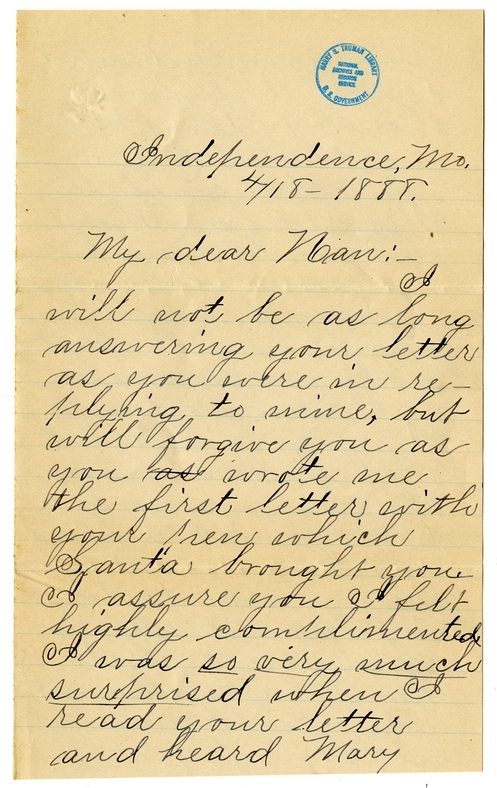 HARRY S. TRUMAN LIBRARY
NATIONAL
ARCHIVES AND
RECORDS
SERVICE
U. S. GOVERNMENT
Independence, Mo.
4/18- 1888.
My dear Nan:-
I
will not be as long
answering your letter
as you were in re-
plying to mine, but
will forgive you as
you as wrote me
the first letter with
your pen which
Santa brought you.
I assure you I felt
highly complimented
I was so very much
surprised when I
read your letter
and heard Mary